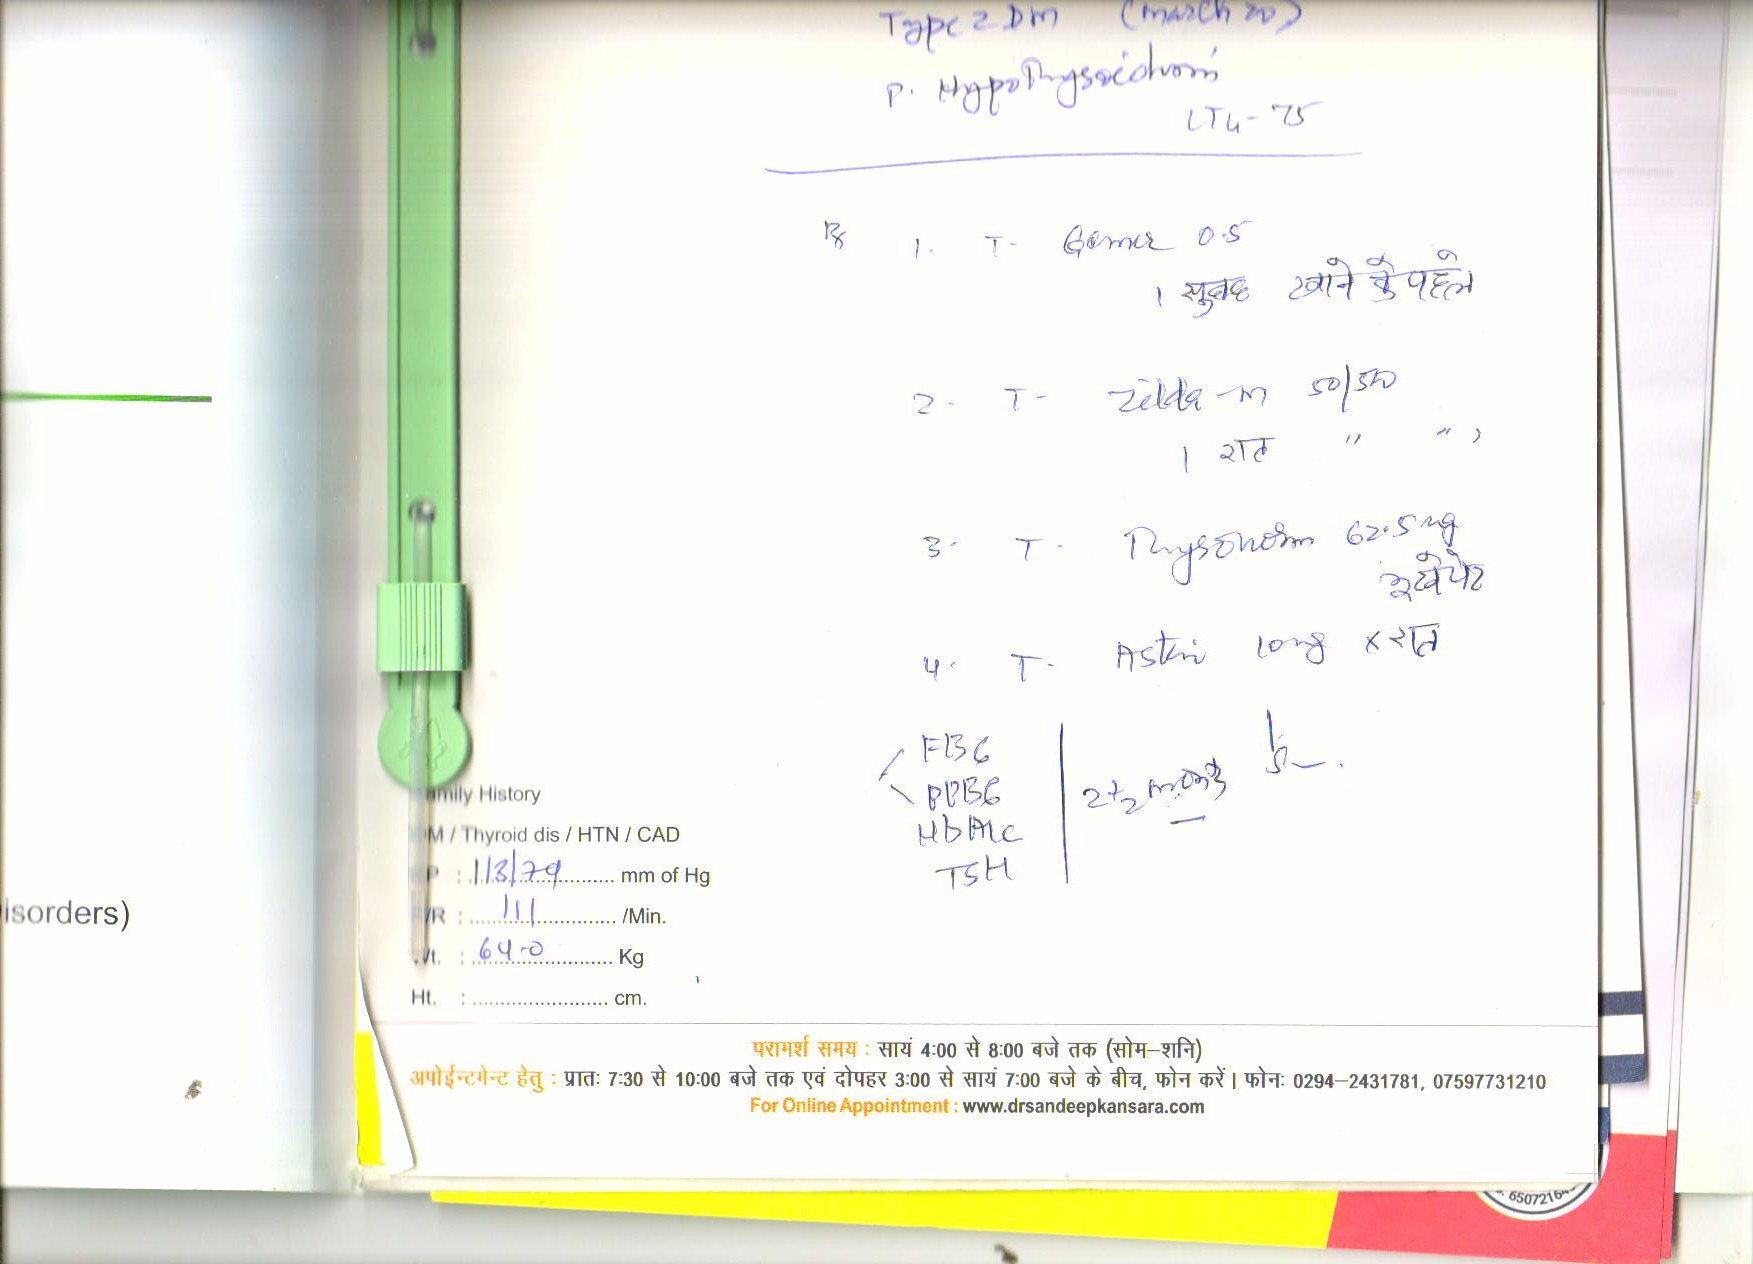 Type 2 DM (March 20)
P. Hypothyroidism
LT4 - 75
Rx
1. T- Gemer 0.5
1 सुबह खाने के पहले
2. T- Zilda-M 50/500
1 रात " "
3. T- Thyronorm 62.5 mg
भूखे पेट
4. T- Astin long x रात
FBG
PPBG
HbA1c
TSH
2 1/2 months
amily History
M / Thyroid dis / HTN / CAD
P : 113/79 mm of Hg
/R : 111 /Min.
t. : 64.0 Kg
Ht. : cm.
isorders)
परामर्श समय : सायं 4:00 से 8:00 बजे तक (सोम–शनि)
अपोईन्टमेन्ट हेतु : प्रातः 7:30 से 10:00 बजे तक एवं दोपहर 3:00 से सायं 7:00 बजे के बीच, फोन करें। फोनः 0294–2431781, 07597731210
For Online Appointment : www.drsandeepkansara.com